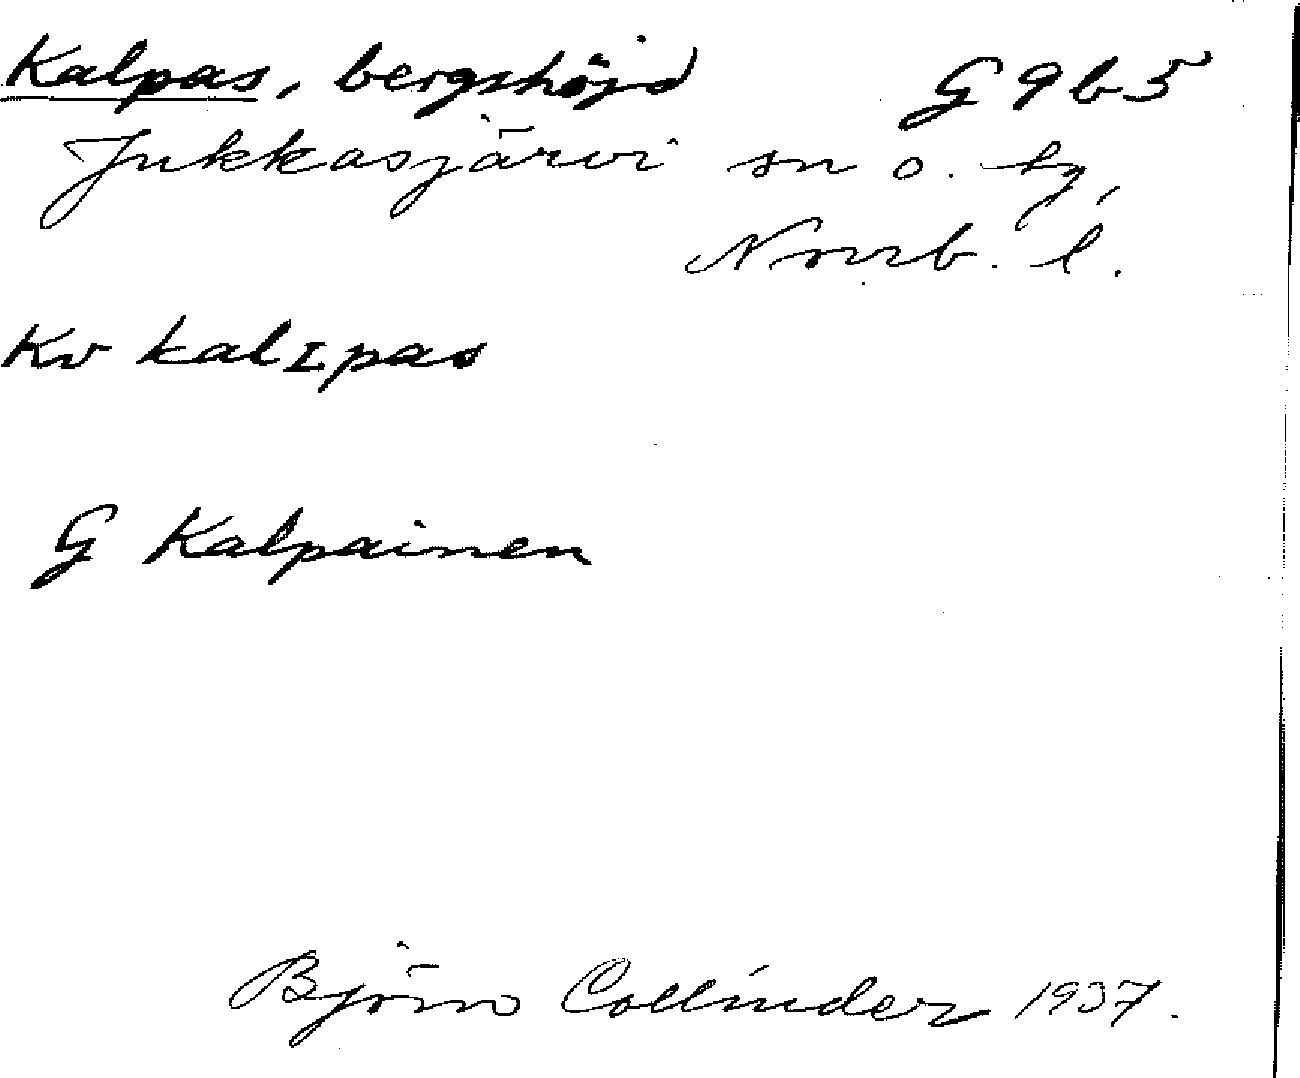 Kalpas, bergshöjd G 9 b 5
Jukkasjärvi sn o. tg,
Norrb. l.
Kv kalɪpas
G Kalpainen
Björn Collinder 1937.